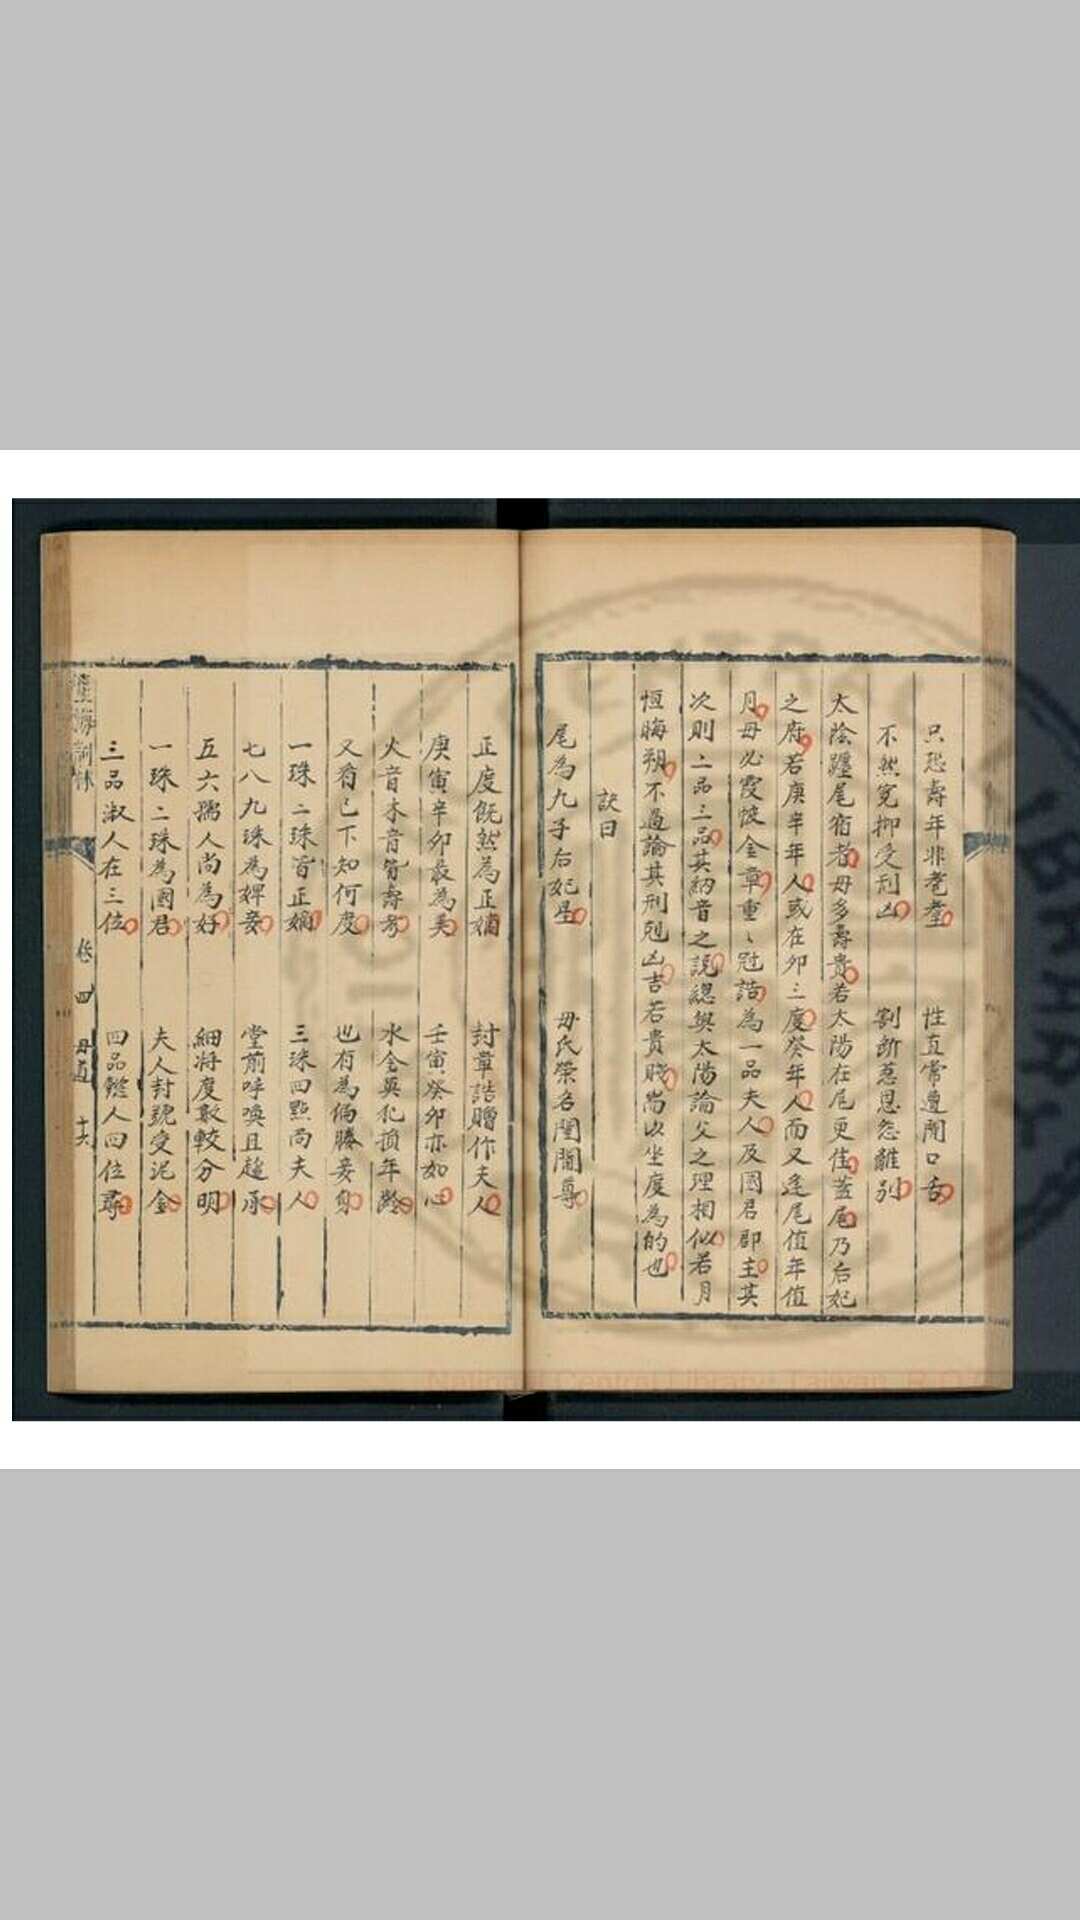 只恐壽年非耄耋 性直常遭鬧口舌
不然冤抑受刑凶 割斷恩怨離別
太陰躔尾宿者毋多壽貴若太陽在尾更佳蓋尾乃后妃
之府若庚辛年人或在卯三度癸年人而又逢尾值年值
月毋必霞帔金章重〻冠誥為一品夫人及國君郡主其
次則二品三品其納音之説總與太陽論父之理相似若月
恒晦朔不過論其刑剋凶吉若貴賤尚以坐度為的也
訣曰
尾為九子后妃星 毋氏榮名閨閫尊
正度既然為正嫡 封章誥贈作夫人
庚寅辛卯最為美 壬寅癸卯亦如心
火音木音皆壽考 水金與化損年齡
又看已下知何度 也有為偏媵妾身
一珠二珠皆正嫡 三珠四點尚夫人
七八九珠為婢妾 堂前呼喚且趨承
五六孺人尚為好 細將度數較分明
一珠二珠為國君 夫人封號受泥金
三品淑人在三位 四品懿人四位尋
星海詞林 卷四 毋道 十六
National Central Library, Taiwan, R.O.C